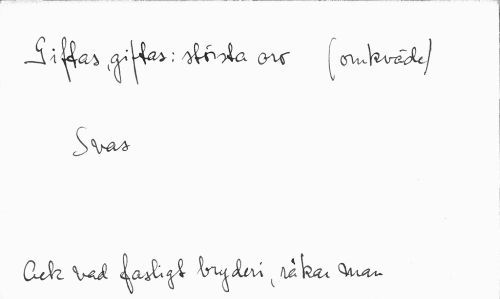 Giftas, giftas: största oro (omkväde)
Svas
Ack vad fasligt bryderi, råkar man